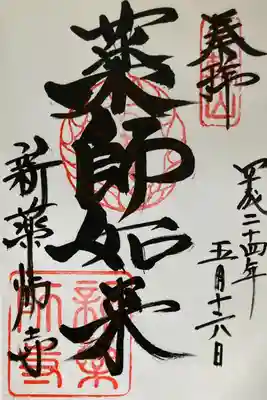 奉拝
平成二十四年
五月十六日
薬師如来
新薬師寺